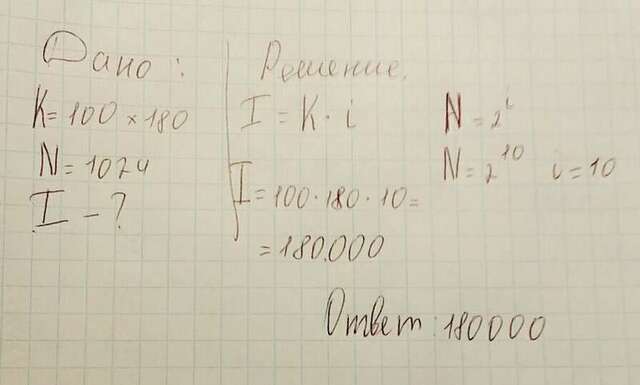 Дано:
K = 100 × 180
N = 1024
I - ?
Решение.
I = K · i
I = 100 · 180 · 10 =
= 180.000
N = 2^i
N = 2^10 i = 10
Ответ: 180000